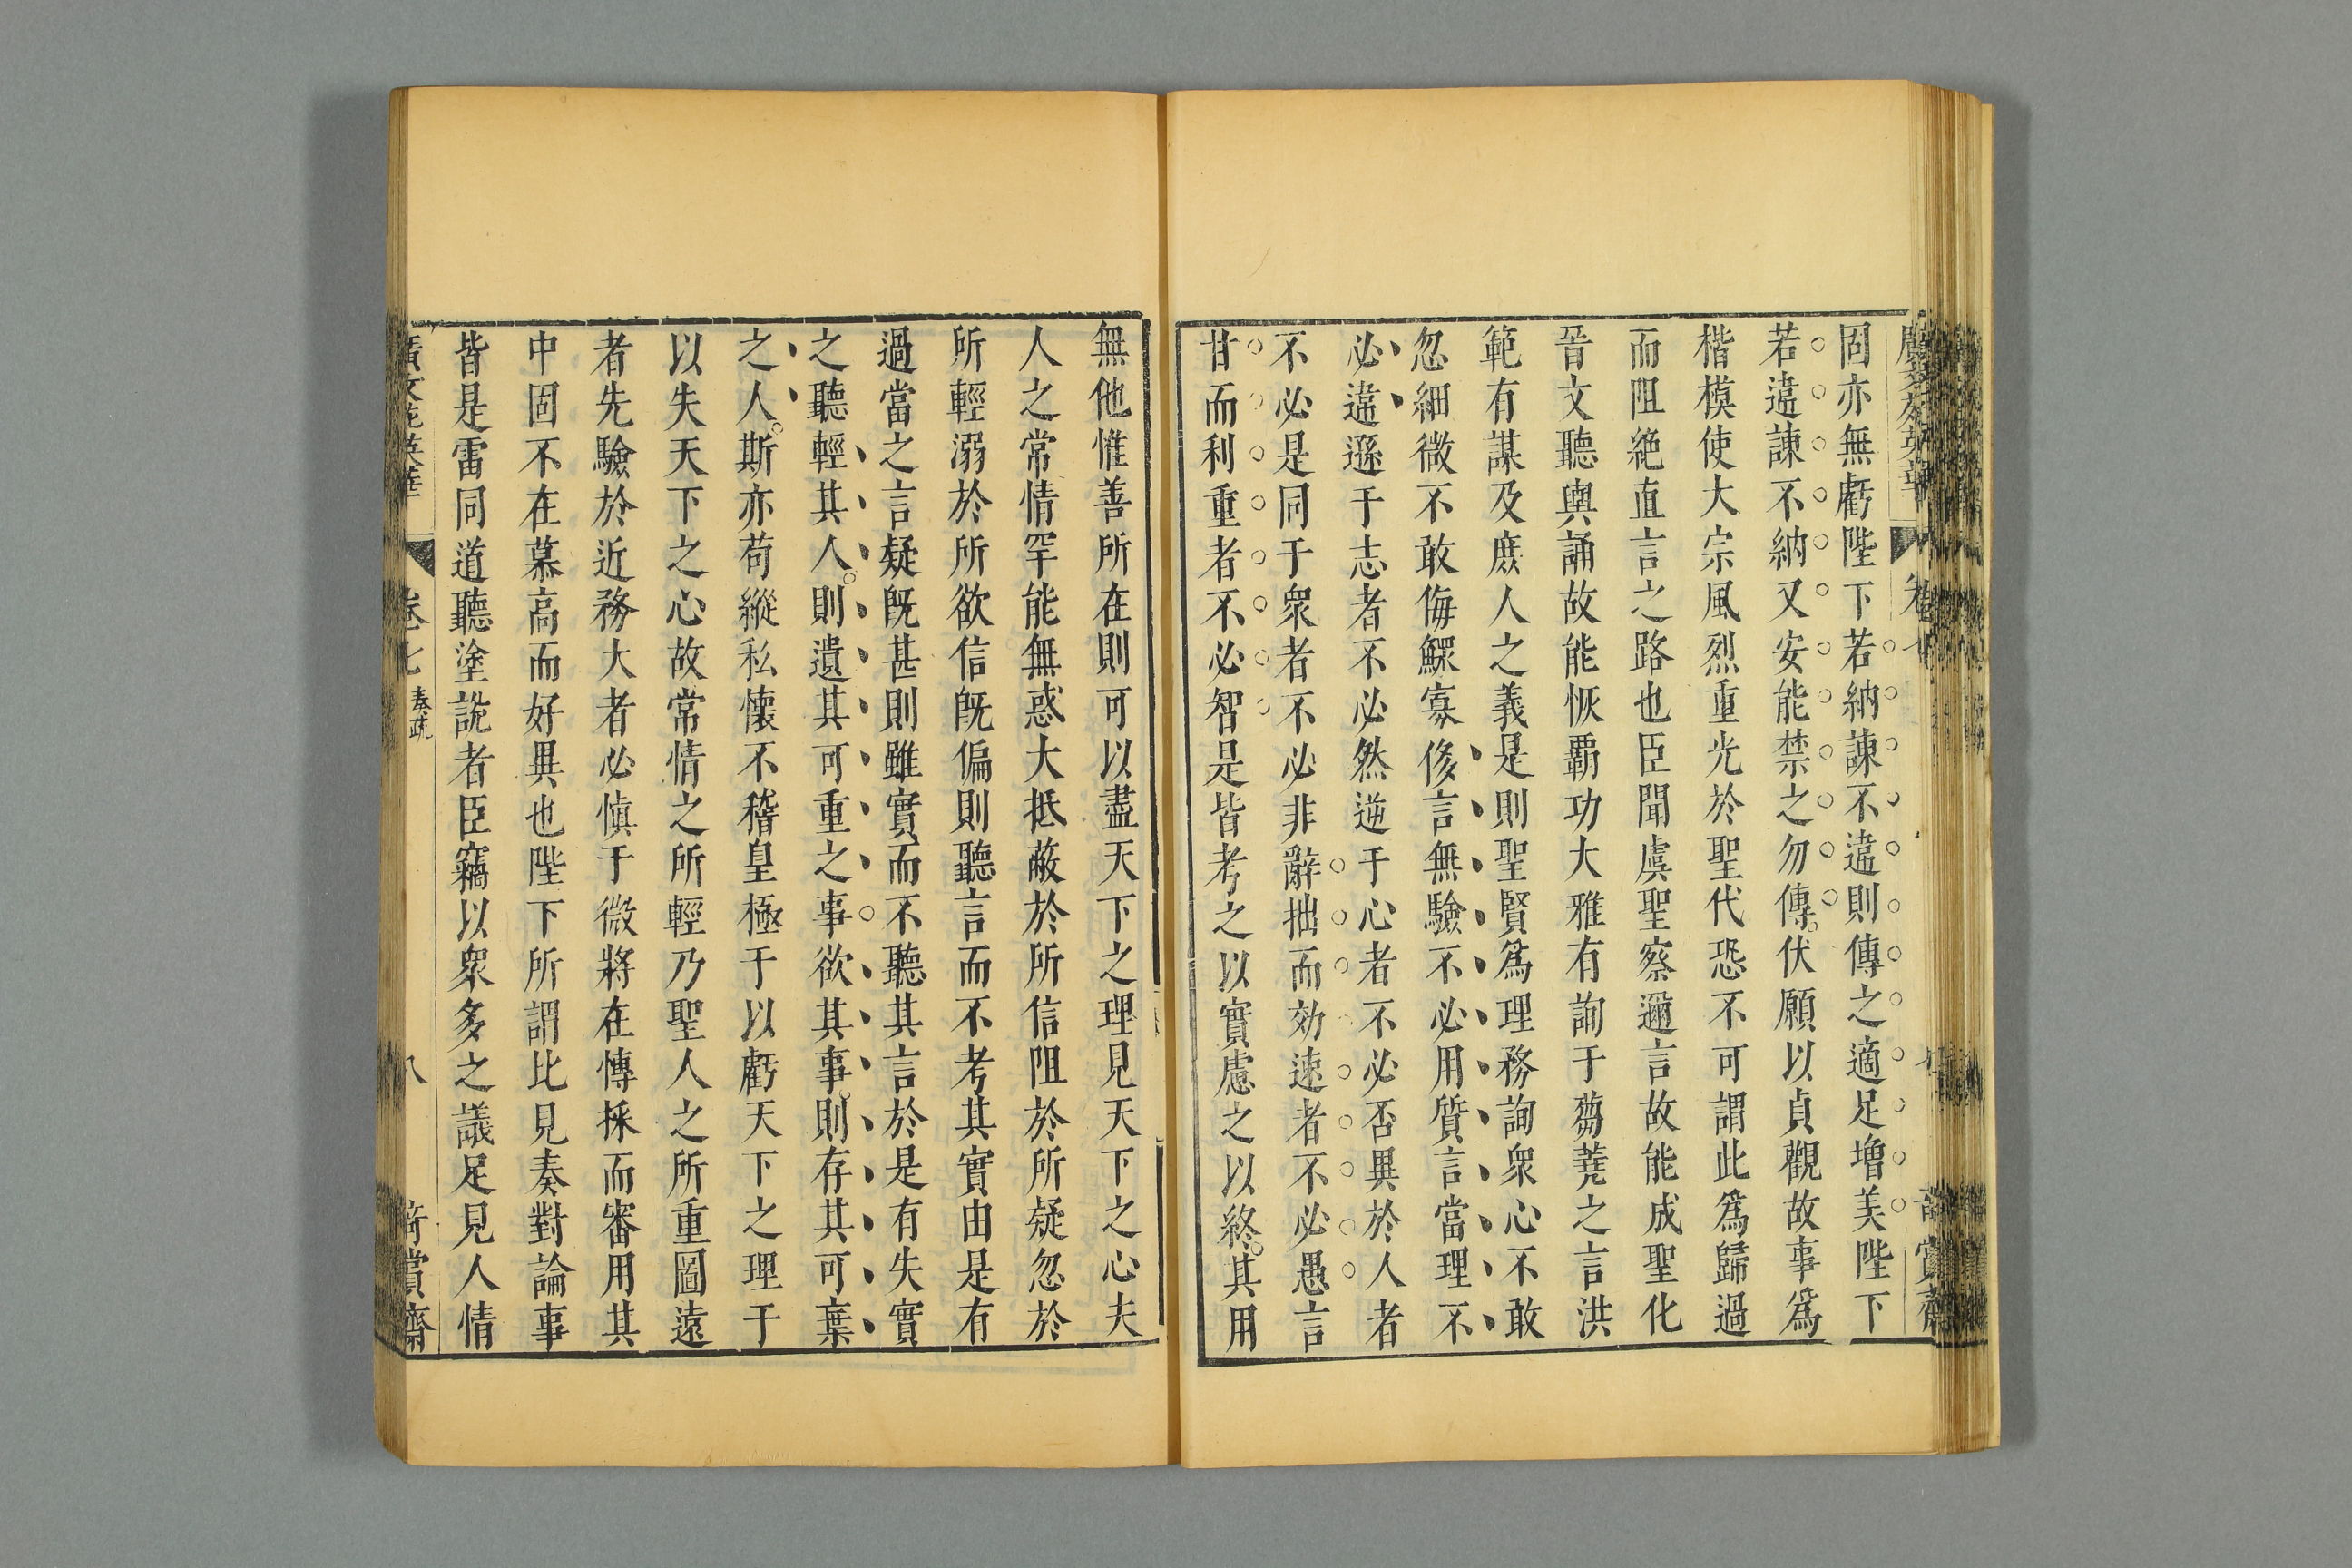 固亦無虧陛下若納諫不違則傳之適足增美陛下
若違諫不納又安能禁之勿傳伏願以貞觀故事爲
楷模使大宗風烈重光於聖代恐不可謂此爲歸過
而阻絶直言之路也臣聞虞聖察邇言故能成聖化
晉文聽輿誦故能恢覇功大雅有詢于蒭蕘之言洪
範有謀及庶人之義是則聖賢爲理務詢衆心不敢
忽細微不敢侮鰥寡侈言無驗不必用質言當理不
必違遜于志者不必然逆于心者不必否異於人者
不必是同于衆者不必非辭拙而効速者不必愚言
甘而利重者不必智是皆考之以實慮之以終其用
無他惟善所在則可以盡天下之理見天下之心夫
人之常情罕能無惑大抵蔽於所信阻於所疑忽於
所輕溺於所欲信旣偏則聽言而不考其實由是有
過當之言疑旣甚則雖實而不聽其言於是有失實
之聽輕其人則遺其可重之事欲其事則存其可棄
之人斯亦苟縱私懷不稽皇極于以虧天下之理于
以失天下之心故常情之所輕乃聖人之所重圖遠
者先驗於近務大者必慎于微將在愽採而審用其
中固不在慕高而好異也陛下所謂比見奏對論事
皆是雷同道聽塗說者臣竊以衆多之議足見人情
廣文苑英華
卷七
奏疏
八